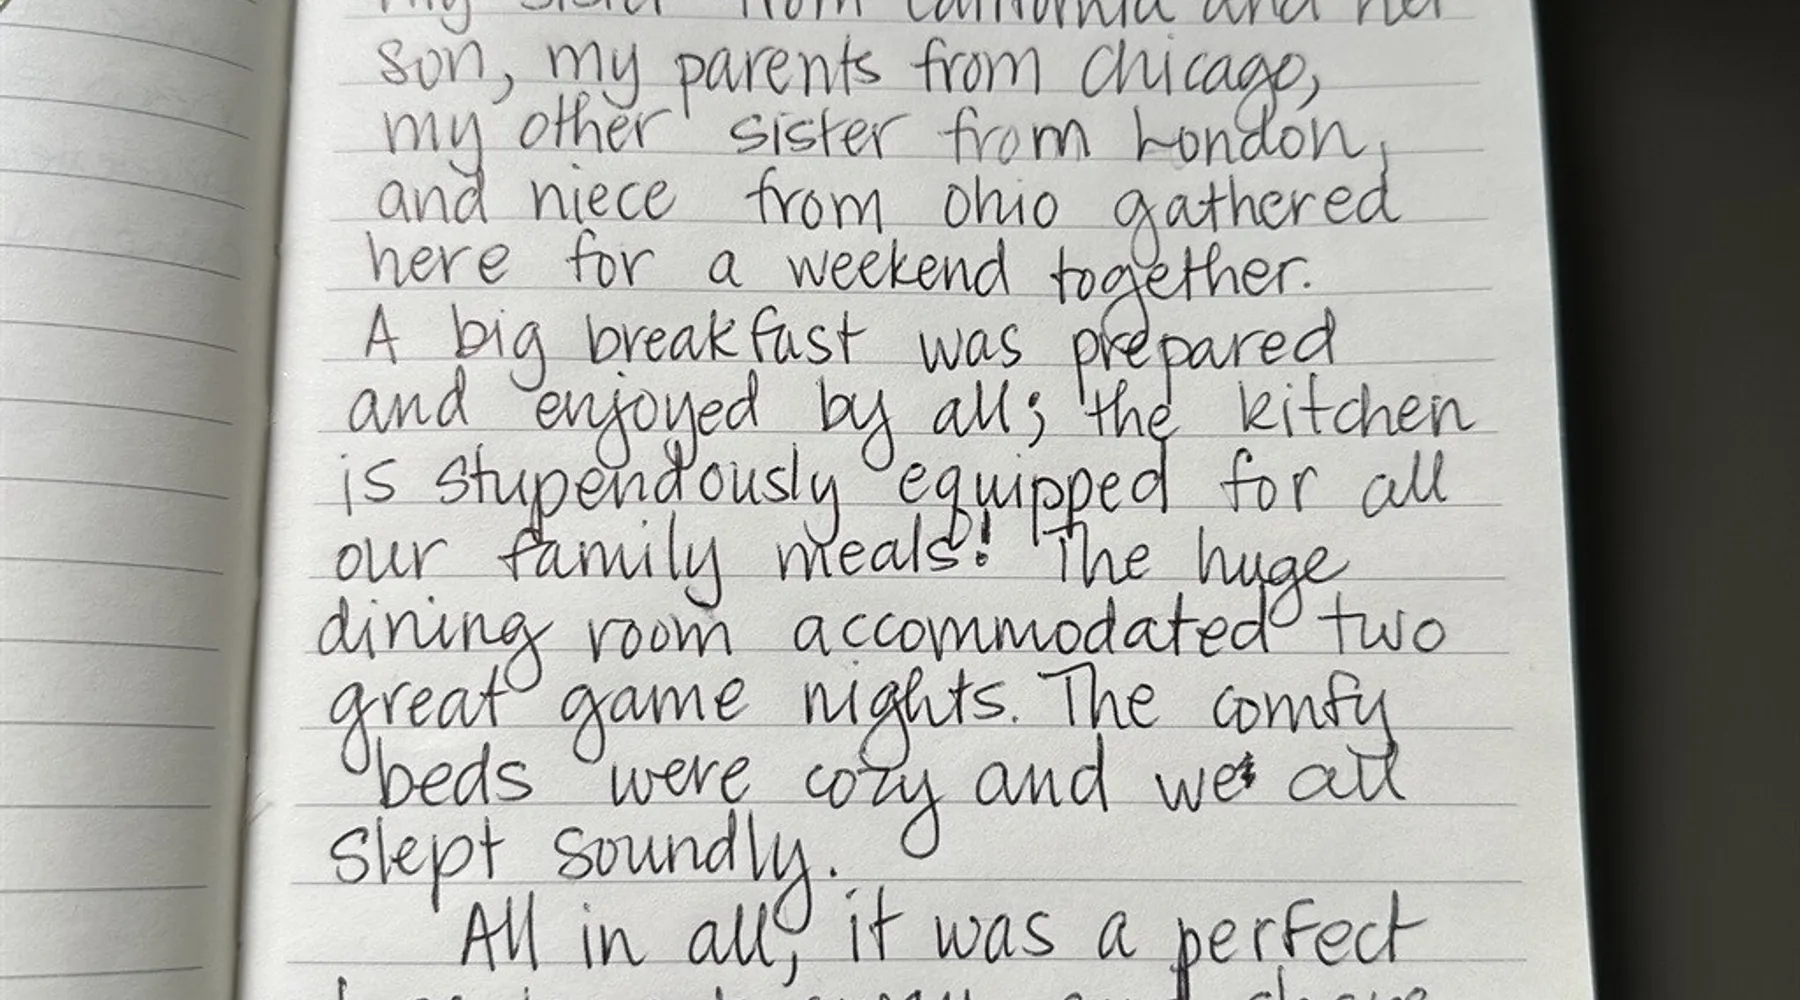 my sister from California and her
son, my parents from Chicago,
my other sister from London,
and niece from Ohio gathered
here for a weekend together.
A big breakfast was prepared
and enjoyed by all; the kitchen
is stupendously equipped for all
our family meals! The huge
dining room accommodated two
great game nights. The comfy
beds were cozy and we all
slept soundly.
All in all, it was a perfect